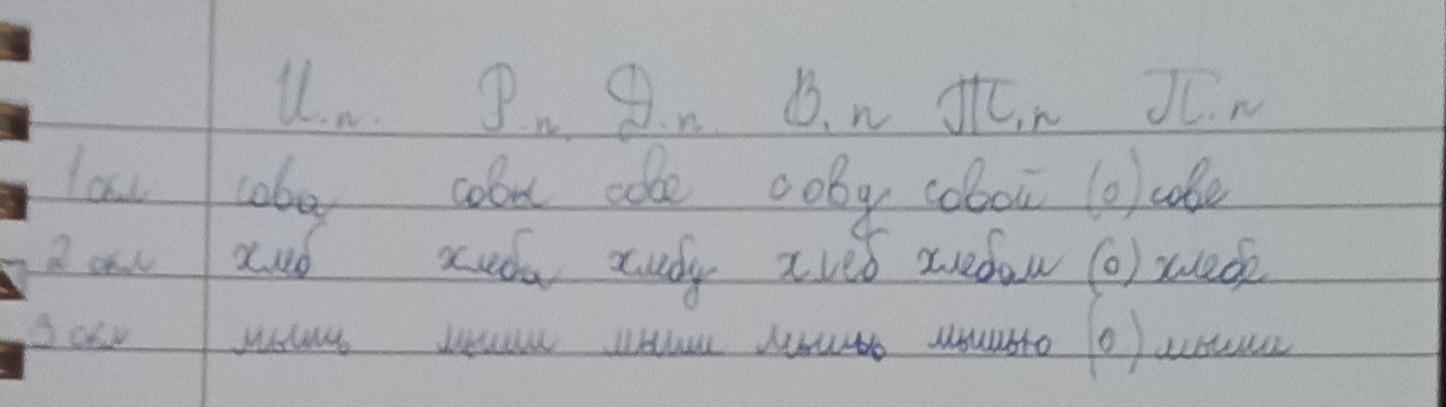 И.п. Р.п. Д.п. В.п Т.п П.п
1 скл сова совы сове сову совой (о) сове
2 скл хлеб хлеба хлебу хлеб хлебом (о) хлебе
3 скл мышь мыши мыши мышь мышью (о) мыши